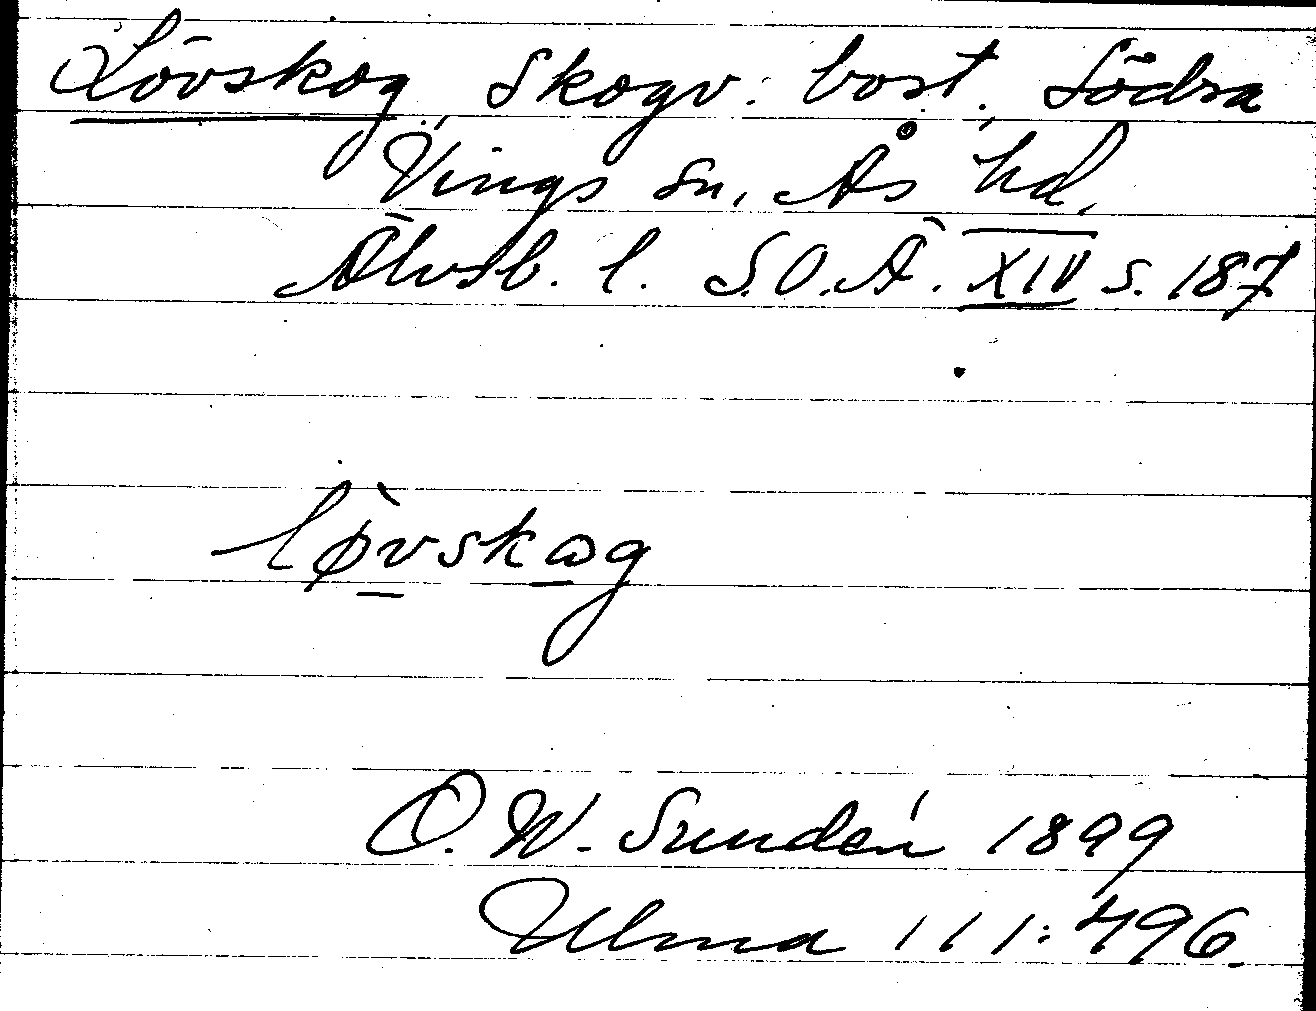 Lövskog, Skogv. bost., Södra
Vings sn, Ås hd,
Älvsb. l. S.O.Ä. XIV s. 187
lø̀vskωg
O. W. Sundén 1899
Ulma 111:496.